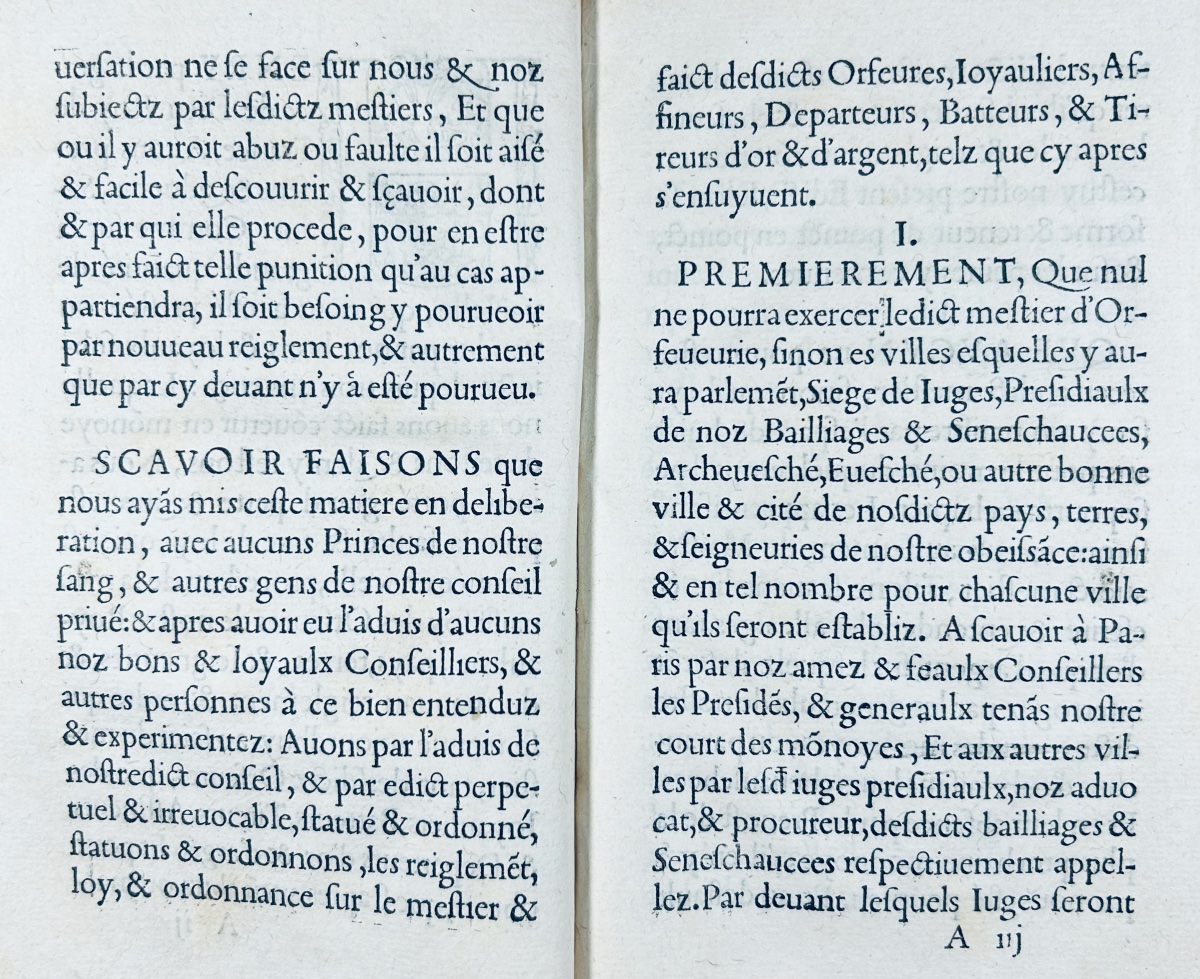 uerſation ne ſe face ſur nous & noz
ſubiectz par leſdictz meſtiers, Et que
ou il y auroit abuz ou faulte il ſoit aiſé
& facile à deſcouurir & ſçauoir, dont
& par qui elle procede, pour en eſtre
apres faict telle punition qu'au cas ap-
partiendra, il ſoit beſoing y pourueoir
par nouueau reiglement, & autrement
que par cy deuant n'y à eſté pourueu.
SCAVOIR FAISONS que
nous ayãs mis ceſte matiere en delibe-
ration, auec aucuns Princes de noſtre
ſang, & autres gens de noſtre conſeil
priué: & apres auoir eu l'aduis d'aucuns
noz bons & loyaulx Conſeilliers, &
autres perſonnes à ce bien entenduz
& experimentez: Auons par l'aduis de
noſtredict conſeil, & par edict perpe-
tuel & irreuocable, ſtatué & ordonné,
ſtatuons & ordonnons, les reiglemẽt,
loy, & ordonnance ſur le meſtier &
faict deſdicts Orfeures, Ioyauliers, Af-
fineurs, Departeurs, Batteurs, & Ti-
reurs d'or & d'argent, telz que cy apres
s'enſuyuent.
I.
PREMIEREMENT, Que nul
ne pourra exercer ledict meſtier d'Or-
feueurie, ſinon es villes eſquelles y au-
ra parlemẽt, Siege de Iuges, Preſidiaulx
de noz Bailliages & Seneſchaucees,
Archeueſché, Eueſché, ou autre bonne
ville & cité de noſdictz pays, terres,
& ſeigneuries de noſtre obeiſsãce: ainſi
& en tel nombre pour chaſcune ville
qu'ils ſeront eſtabliz. A ſcauoir à Pa-
ris par noz amez & feaulx Conſeillers
les Preſidẽs, & generaulx tenãs noſtre
court des mõnoyes, Et aux autres vil-
les par leſd̃ iuges preſidiaulx, noz aduo
cat, & procureur, deſdicts bailliages &
Seneſchaucees reſpectiuement appel-
lez. Par deuant leſquels Iuges ſeront
A iij